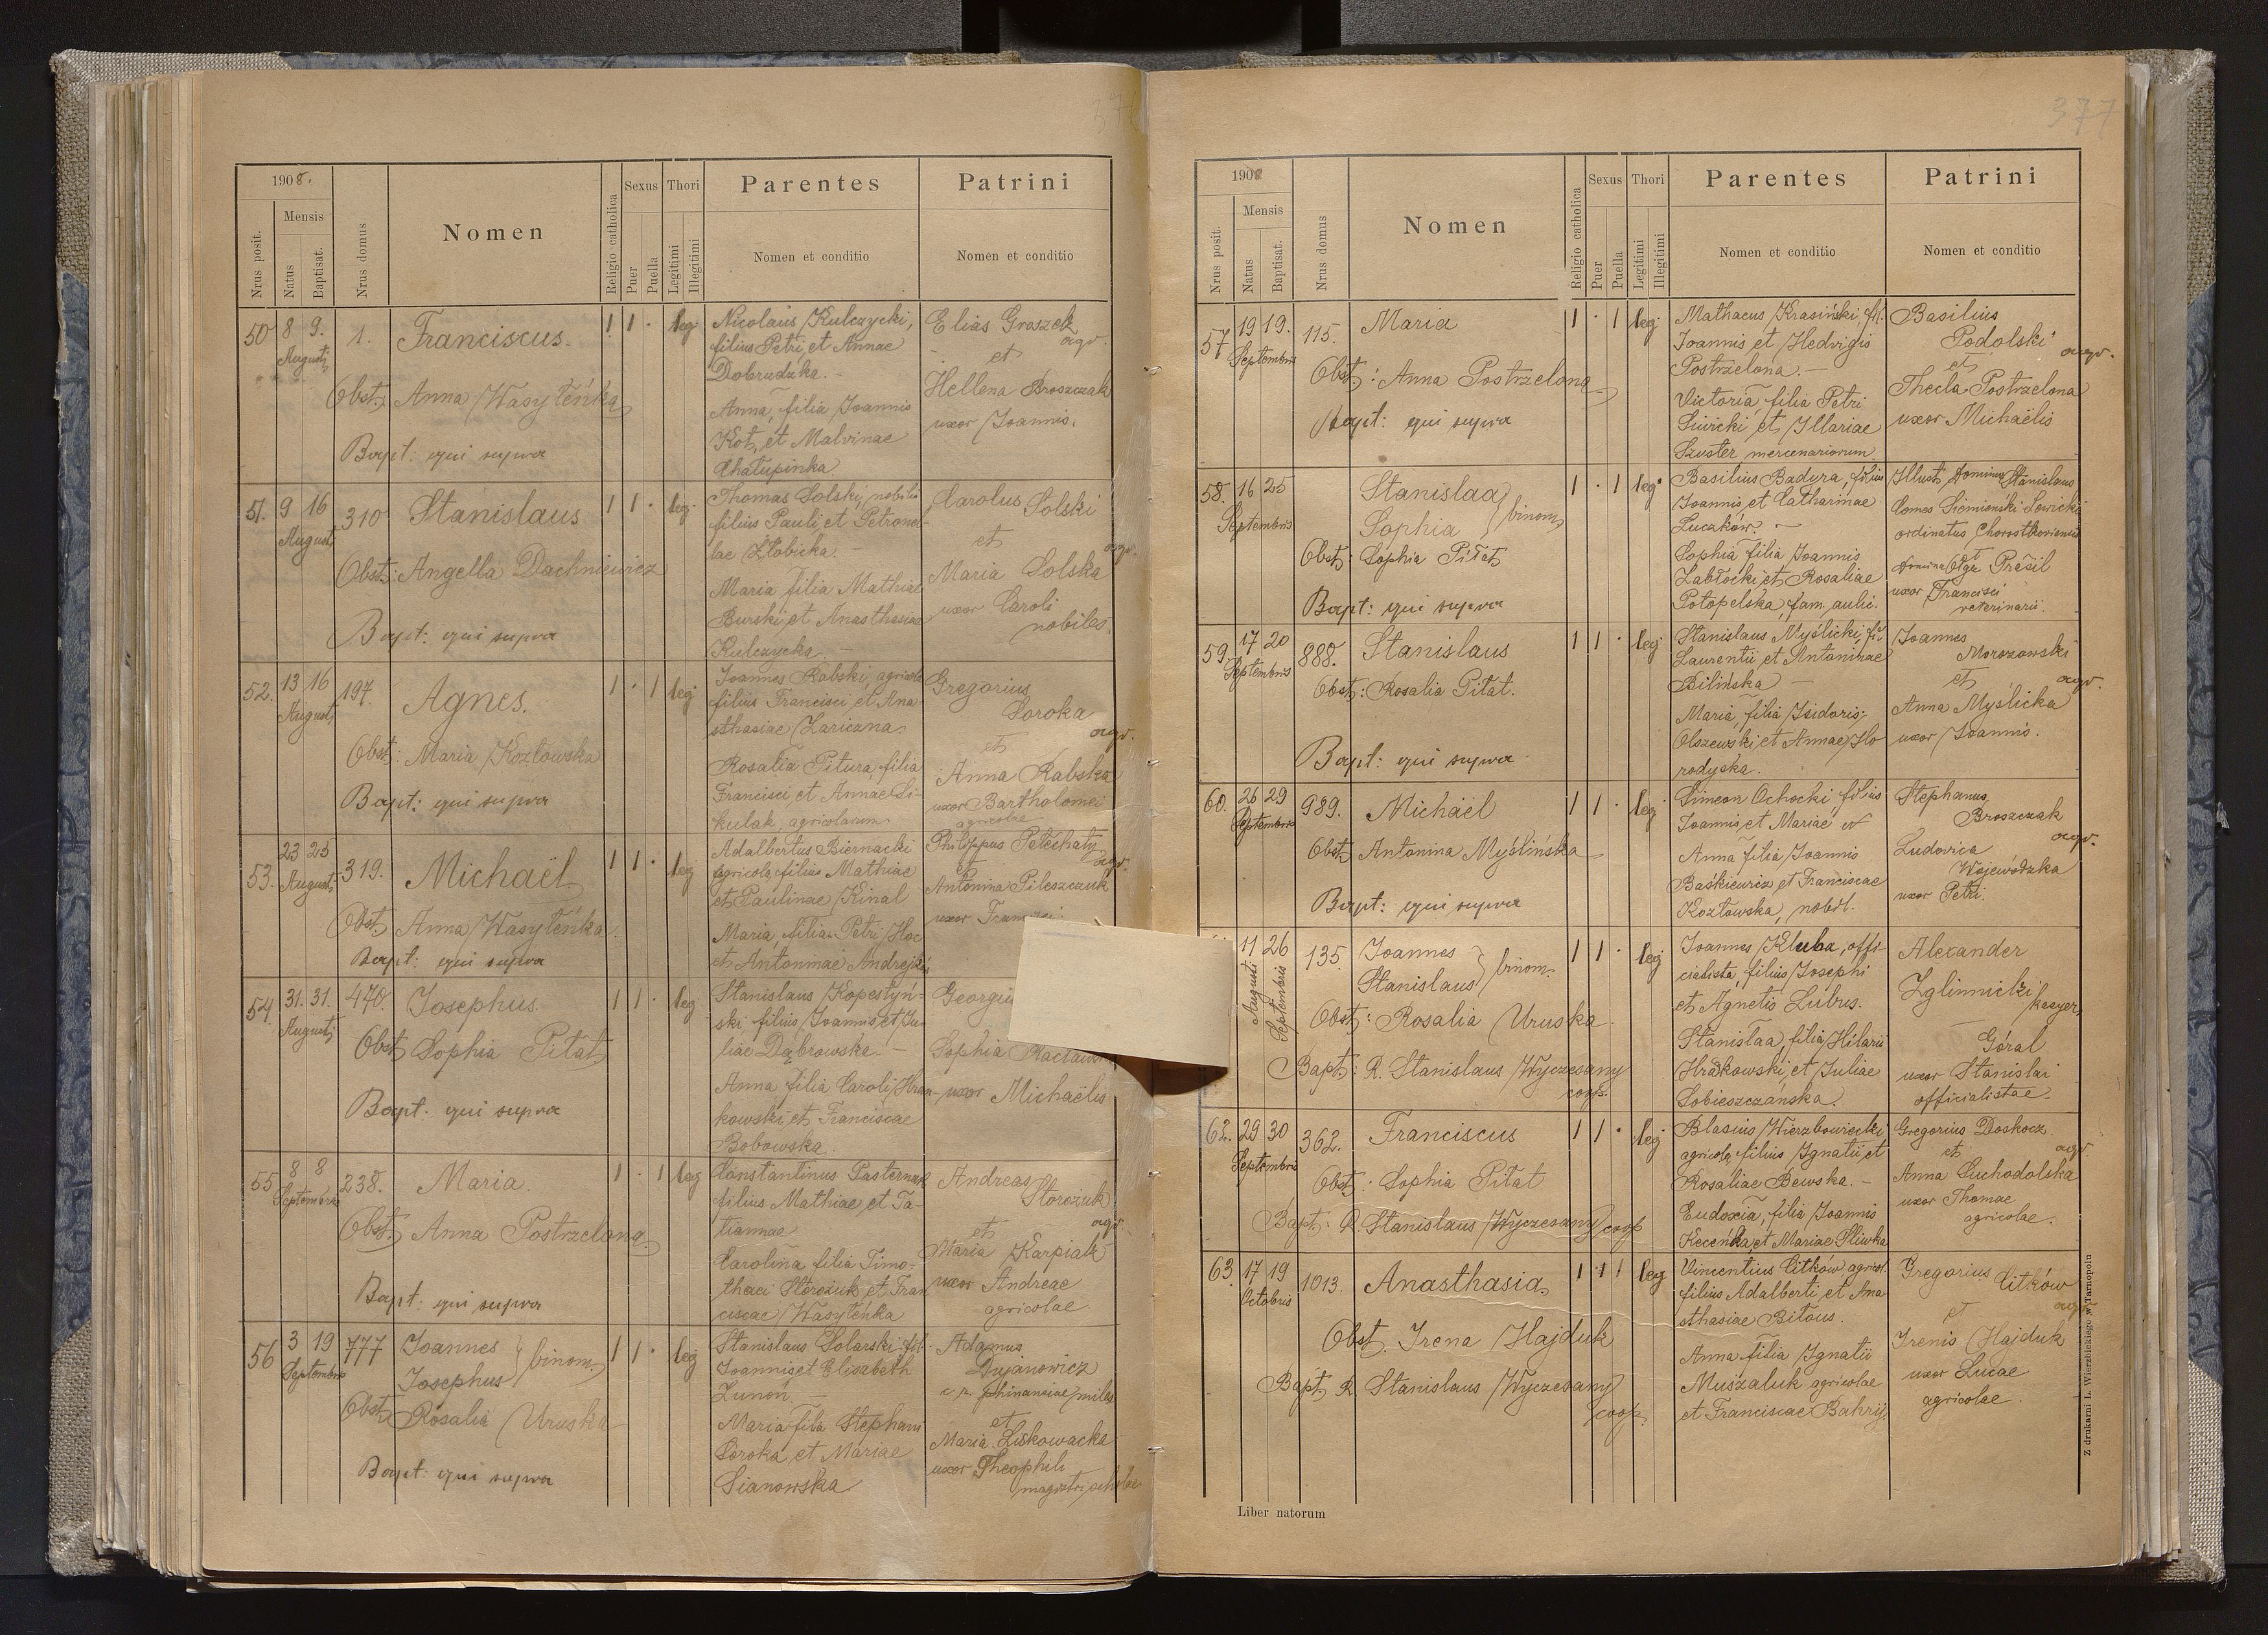 1908.
Nrus posit.
Mensis
Natus
Baptisat.
Nrus domus
Nomen
Religio catholica
Sexus
Puer
Puella
Thori
Legitimi
Illegitimi
Parentes
Nomen et conditio
Patrini
Nomen et conditio
50 8 9. 1. Franciscus. 1 1 · leg
Augusti
Obst. Anna Wasyleńka
Bapt: qui supra
Nicolaus Kulczycki,
filius Petri et Annae
Dobrudzka. -
Anna, filia Joannis
Kot, et Malvinae
Chałupinka
Elias Groszek
agr.
et
Hellena Broszczak
uxor Joannis.
51. 9 16 310 Stanislaus 1 1 · leg
Augusti
Obst: Angella Dachniewicz
Bapt: qui supra
Thomas Solski, nobilis
filius Pauli et Petronel-
lae Złobicka. -
Maria filia Mathiae
Burski, et Anasthasiae
Kulczycka. -
Carolus Solski
et agr.
Maria Solska
uxor Caroli
nobiles.
52. 13 16 197. Agnes. 1 · 1 leg
Augusti
Obst: Maria Kozłowska
Bapt: qui supra
Joannes Rabski, agricola
filius Francisci et Ana
sthasiae Zariczna.
Rosalia Pitura, filia
Francisci et Annae Si-
kulak, agricolarum
Gregorius
Soroka
agr.
et
Anna Rabska
uxor Bartholomei
agricolae
53. 23 25 319. Michaël 1 1 · leg
Augusti
Obst. Anna Wasyleńka.
Bapt: qui supra
Adalbertus Biernacki
agricola, filius Mathiae
et Paulinae Kinal
Maria, filia Petri Hoc
et Antoninae Andrejków
Philippus Petechaty
agr.
et
Antonina Pileszczuk
uxor Francisci
54. 31. 31. 470. Josephus. 1 1 · leg
Augusti
Obst. Sophia Pitat
Bapt: qui supra
Stanislaus Kopestyń-
ski filius Joannis, et Ju-
liae Dąbrowska. -
Anna filia Caroli Hran-
kowski, et Franciscae
Bobowska
Georgiu
Sophia Racławs
uxor Michaëlis
55 8 8 238. Maria. 1 · 1 leg
Septembris
Obst. Anna Postrzelona.
Bapt: qui supra
Constantinus Pasternak
filius Mathiae et Ta-
tiannae
Carolina filia Timo-
thaei Storczuk et Fran
ciscae Wasyleńka
Andreas
Storczuk
agr.
et
Maria Karpiak
uxor Andreae
agricolae.
56 3 19 777 Joannes
Josephus } binom. 1 1 · leg
Septembris
Obst. Rosalia Uruska
Bapt: qui supra
Stanislaus Solarski fil.
Joannis et Elisabeth
Zunon. -
Maria filia Stephani
Soroka, et Mariae
Sianowska
Adamus
Dujanowicz
c. r. phinanciae miles
et
Maria Liskowacka
uxor Theophili
magistri scholae
377
1908
Nrus posit.
Mensis
Natus
Baptisat.
Nrus domus
Nomen
Religio catholica
Sexus
Puer
Puella
Thori
Legitimi
Illegitimi
Parentes
Nomen et conditio
Patrini
Nomen et conditio
57 19 19. 115. Maria 1 · 1 leg
Septembris
Obst: Anna Postrzelona
Bapt: qui supra
Mathaeus Krasiński, fil.
Joannis et Hedvigis
Postrzelona. -
Victoria, filia Petri
Siwicki et Illariae
Szuster mercenariorum
Basilius
Podolski
agr.
et
Thecla Postrzelona
uxor Michaëlis
58. 16 25 Stanislaa
Sophia } binom. 1 · 1 leg
Septembris
Obst: Sophia Pitat
Bapt: qui supra
Basilius Badyra, filius
Joannis et Catharinae
Lucaków -
Sophia filia Joannis
Zabłocki et Rosaliae
Potopelska, fam. aulic.
Illust. Dominus Stanislaus
Comes Siemieński Lewicki
ordinatus Chorostkoviensis
Domina Olga Prašil
uxor Francisci
veterinarii.
59. 17 20 888. Stanislaus 1 1 · leg
Septembris
Obst: Rosalia Pitat.
Bapt: qui supra
Stanislaus Myślicki, fil.
Laurentii et Antoninae
Bilińska -
Maria, filia Isidoris
Olszewski et Annae Ho
rodyska.
Joannes
Morozowski
et agr.
Anna Myślicka
uxor Joannis.
60. 26 29 989. Michaël 1 1 · leg
Septembris
Obst. Antonina Myślińska
Bapt: qui supra
Simeon Ochocki, filius
Joannis et Mariae N
Anna filia Joannis
Baśkiewicz et Franciscae
Kozłowska, nobil.
Stephanus
Broszczak
agr.
Ludovica
Wojewódzka
uxor Petri.
11 26 135. Joannes
Stanislaus } binom. 1 1 · leg
Augusti
Septembris
Obst: Rosalia Uruska.
Bapt: R. Stanislaus Wyczesany
coop.
Joannes Kluba, offi
cialista, filius Josephi
et Agnetis Lubus.
Stanislaa, filia Hilarii
Hrakowski, et Juliae
Sobieszczańska.
Alexander
Zglinnicki
kasyer.
Góral
uxor Stanislai
officialistae.
62. 29 30 362. Franciscus 1 1 · leg
Septembris
Obst: Sophia Pitat
Bapt: R Stanislaus Wyczesany coop
Blasius Wierzbowiecki
agricola, filius Ignatii et
Rosaliae Bewska. -
Eudoxia, filia Joannis
Keceńka, et Mariae Śliwka
Gregorius Doskocz.
et agr.
Anna Suchodolska
uxor Thomae
agricolae.
63. 17 19 1013. Anasthasia 1 · 1 leg
Octobris
Obst. Irena Hajduk
Bapt. R Stanislaus Wyczesany
coop.
Vincentius Citków agricol.
filius Adalberti et Ana
sthasiae Bitous.
Anna filia Ignatii
Muszaluk agricolae
et Franciscae Bahrij
Gregorius Citków
et agr.
Irenis Hajduk
uxor Lucae
agricolae.
Liber natorum
Z drukarni L. Wierzbickiego w Tarnopolu